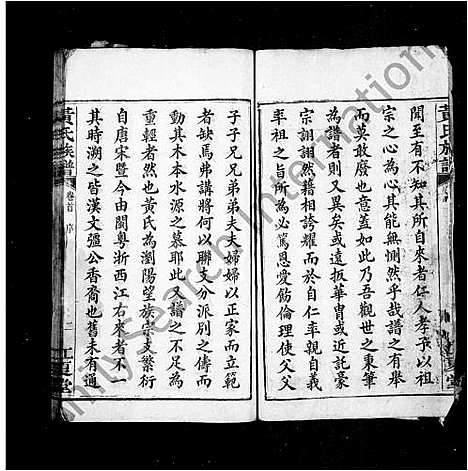 聞至有不知其所自來者仁人孝子以祖
宗之心為心其能無惻然乎哉譜之有舉
而莫敢廢也意蓋如此乃吾觀世之秉筆
為譜者則又異矣或遠扳華冑或近託豪
宗詡詡然藉相誇耀而於仁率自義
率祖之旨所為必篤恩愛飭倫理使父父
子子兄兄弟弟夫夫婦婦以正家而立範
者缺焉弗講將何以聯支分派別之儔而
動其木本水源之慕耶此又譜之不足為
重輕者然也黃氏為瀏陽望族宗支繁衍
自唐宋暨今由閩粵浙西江右來者不一
其時溯之皆漢文彊公香裔也舊未有通
黃氏族譜
卷首 序
二
江夏堂
黃氏族譜
FamilySearch International